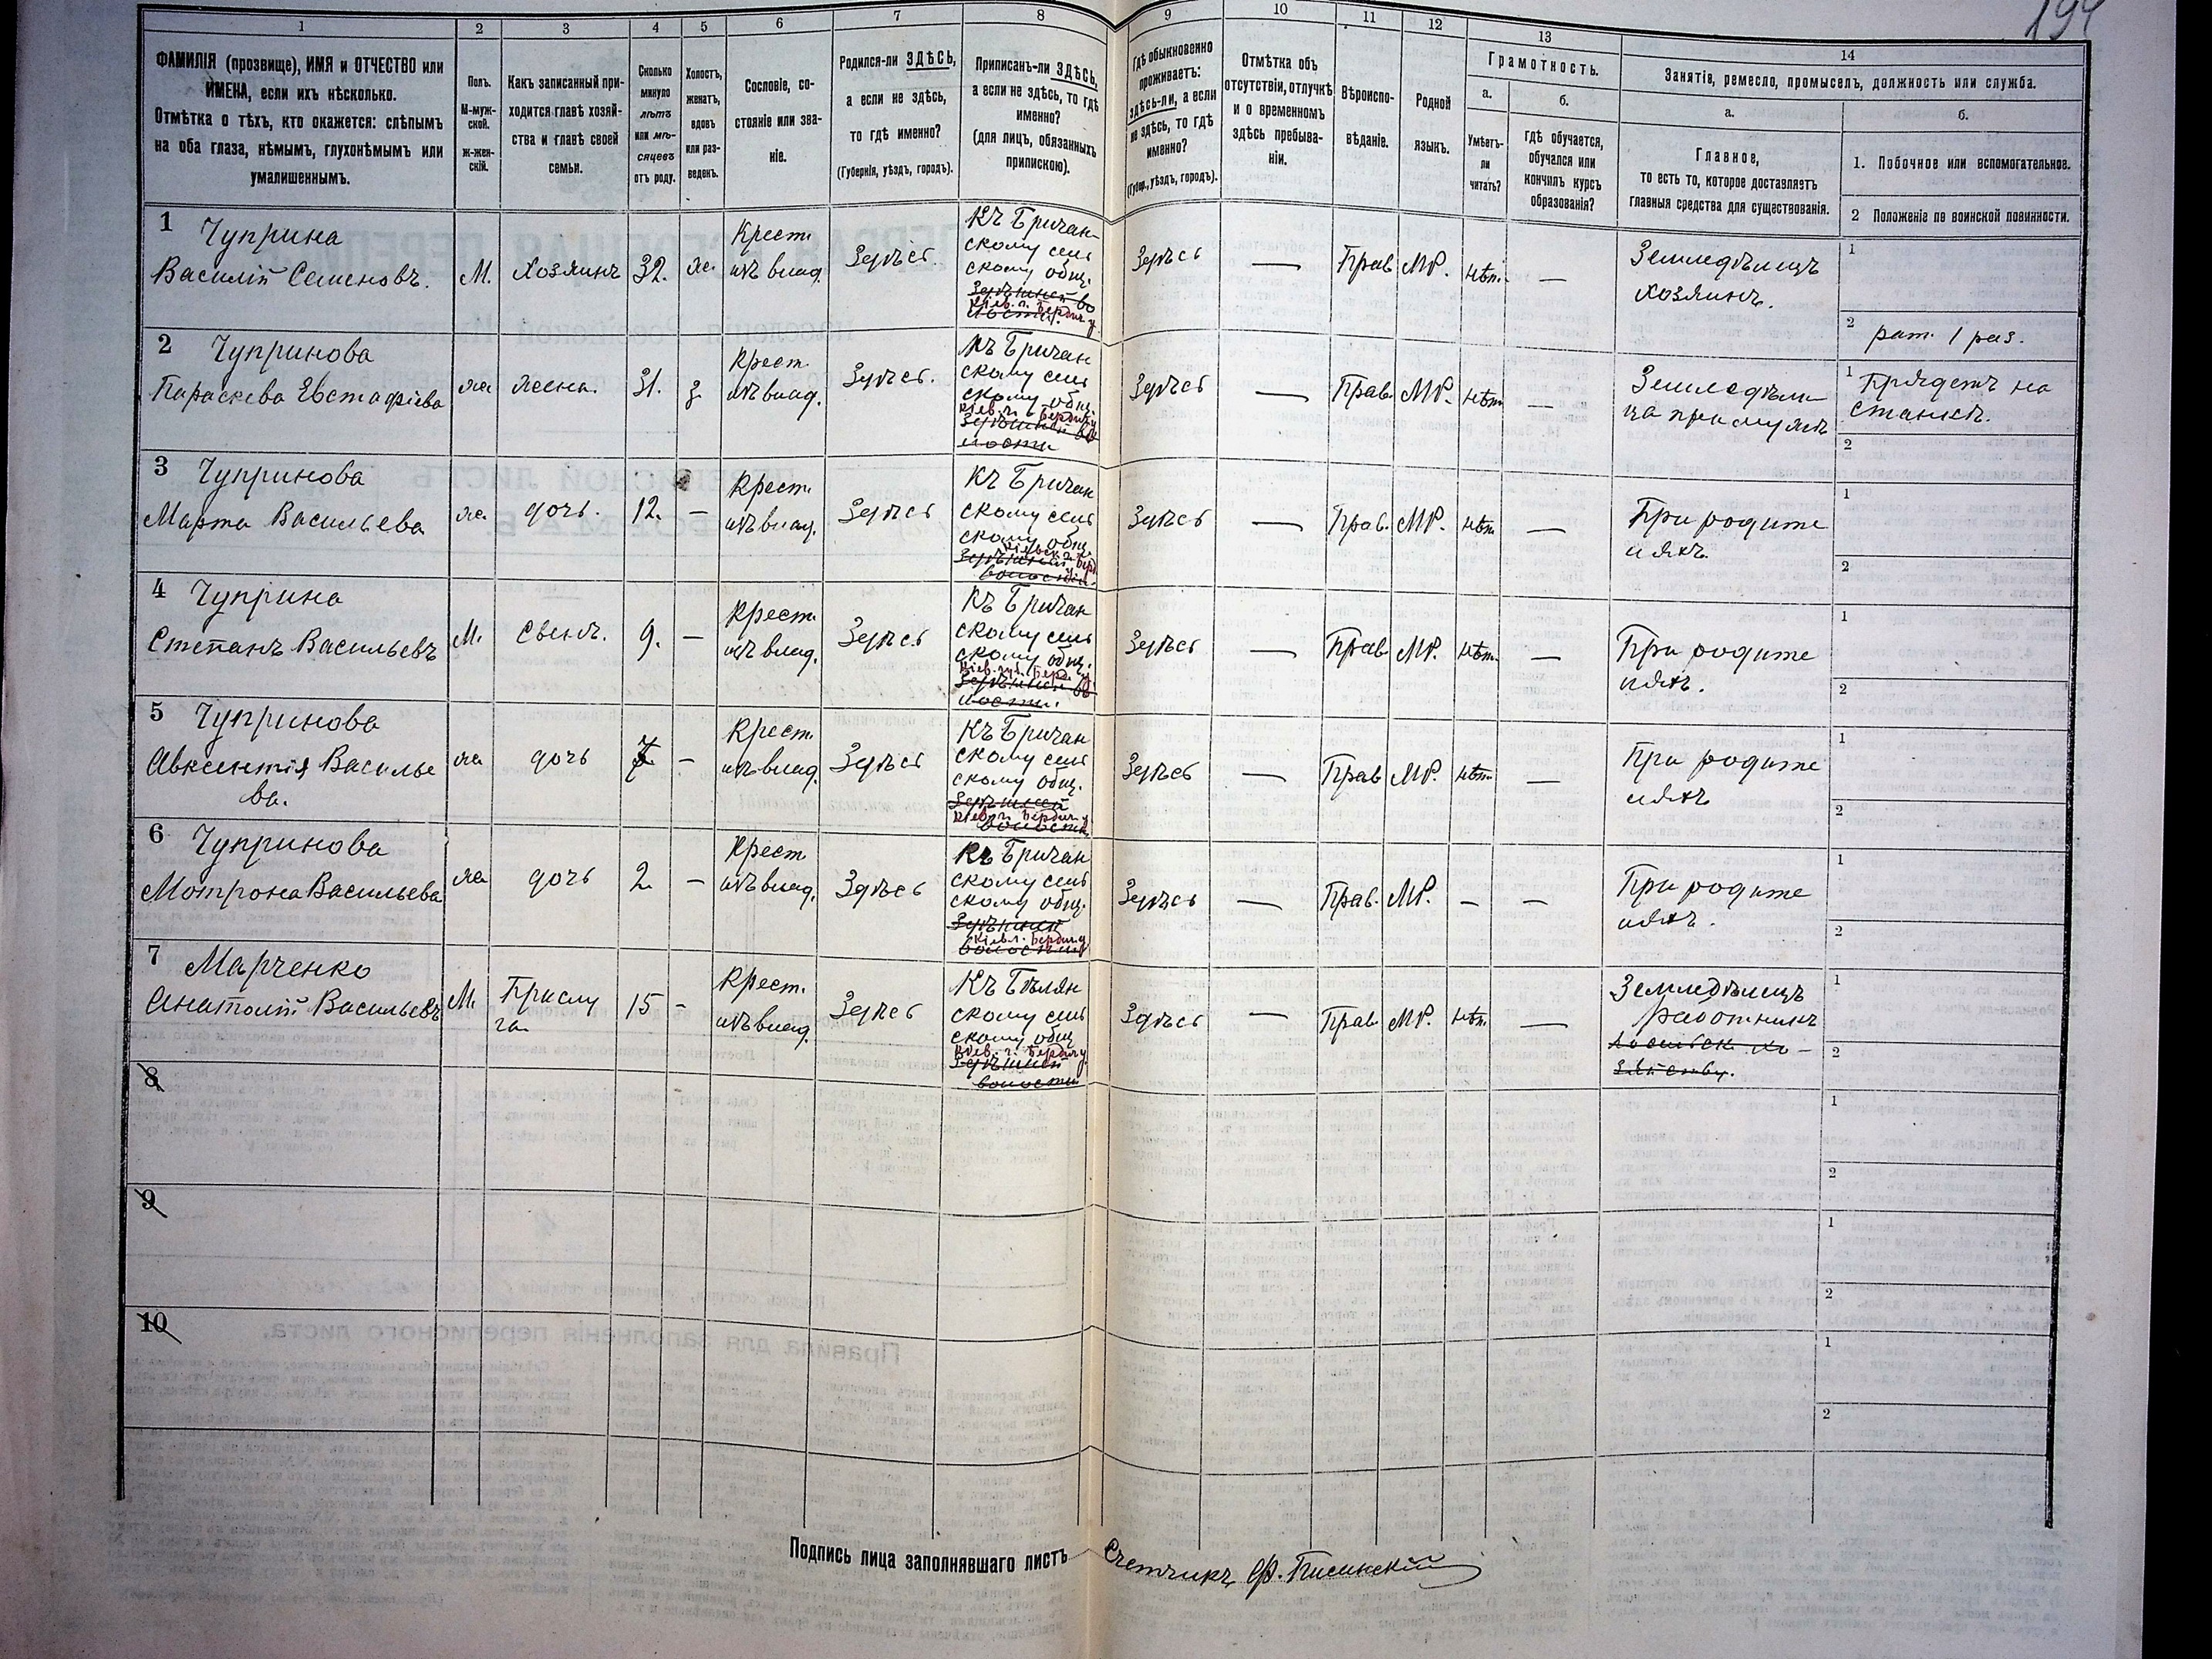 194
1 2 3 4 5 6 7 8 9 10 11 12 13 14
ФАМИЛІЯ (прозвище), ИМЯ и ОТЧЕСТВО или
ИМЕНА, если ихъ нѣсколько.
Отмѣтка о тѣхъ, кто окажется: слѣпымъ
на оба глаза, нѣмымъ, глухонѣмымъ или
умалишеннымъ.
Полъ.
М-муж-
ской.
Ж-жен-
скій.
Какъ записанный при-
ходится главѣ хозяй-
ства и главѣ своей
семьи.
Сколько
минуло
лѣтъ
или мѣ-
сяцевъ
отъ роду.
Холостъ,
женатъ,
вдовъ
или раз-
веденъ.
Сословіе, со-
стояніе или зва-
ніе.
Родился-ли ЗДѢСЬ,
а если не здѣсь,
то гдѣ именно?
(Губернія, уѣздъ, городъ).
Приписанъ-ли ЗДѢСЬ,
а если не здѣсь, то гдѣ
именно?
(для лицъ, обязанныхъ
припискою).
Гдѣ обыкновенно
проживаетъ:
здѣсь-ли, а если
не здѣсь, то гдѣ
именно?
(Губер., уѣздъ, городъ).
Отмѣтка объ
отсутствіи, отлучкѣ
и о временномъ
здѣсь пребыва-
ніи.
Вѣроиспо-
вѣданіе.
Родной
языкъ.
Грамотность.
а.
Умѣетъ-
ли
читать?
б.
гдѣ обучается,
обучался или
кончилъ курсъ
образованія?
Занятіе, ремесло, промыселъ, должность или служба.
а.
Главное,
то есть то, которое доставляетъ
главныя средства для существованія.
б.
1. Побочное или вспомогательное.
2 Положеніе по воинской повинности.
1 Чуприна
Василій Семеновъ.
М.
Хозяинъ
32.
ж.
Крест.
изъ влад.
Здѣсь.
Къ Бричан-
скому сель
скому общ.
Здѣшней во
Кіев. г. Бердич. у.
лости.
Здѣсь
—
Прав
МР.
нѣт.
—
Земледѣлецъ
хозяинъ.
1
2 рат. 1 раз.
2 Чупринова
Параскева Евстафіева
ж
жена.
31.
з.
Крест.
изъ влад.
Здѣсь.
Къ Бричан
скому сель
скому общ.
Кіев. г. Бердич. у
Здѣшней во
лости
Здѣсь
—
Прав.
МР.
нѣт
—
Земледѣли
ца при мужѣ
1 Прядетъ на
станкѣ.
2
3 Чупринова
Марта Васильева
ж
дочь.
12.
—
Крест.
изъ влад.
Здѣсь
Къ Бричан
скому сель
скому общ.
Здѣшней
волости.
Здѣсь
—
Прав.
МР.
нѣт
—
При родите
ляхъ.
1
2
4 Чуприна
Степанъ Васильевъ
М.
Сынъ.
9.
—
Крест.
изъ влад.
Здѣсь
Къ Бричан
скому сель
скому общ.
Кіев. губ. Берд. у.
Здѣшней во
лости.
Здѣсь
—
Прав
МР.
нѣт.
—
При родите
ляхъ.
1
2
5 Чупринова
Авксентія Василье
ва.
ж
дочь
—
Крест.
изъ влад.
Здѣсь
Къ Бричан
скому сель
скому общ.
Здѣшней
Кіев. г. Бердич. у.
волости
Здѣсь
—
Прав
МР.
нѣт.
—
При родите
ляхъ
1
2
6 Чупринова
Мотрона Васильева
ж
дочь
2.
—
Крест
изъ влад.
Здѣсь
Къ Бричан
скому сель
скому общ.
Здѣшней
Кіев. г. Бердич. у
волости
Здѣсь
—
Прав.
МР.
—
—
При родите
ляхъ.
1
2
7 Марченко
Анатолій Васильевъ
М.
Прислу
га
15
-
Крест.
изъ влад.
Здѣсь
Къ Бѣлян
скому сель
скому общ
Кіев. г. Бердич. у.
Здѣшней
волости
Здѣсь
—
Прав
МР.
нѣт.
—
Земледѣлецъ
работникъ
1
2
8
1
2
9
1
2
10
1
2
Подпись лица заполнявшаго листъ Счетчикъ Ф. Писинскій